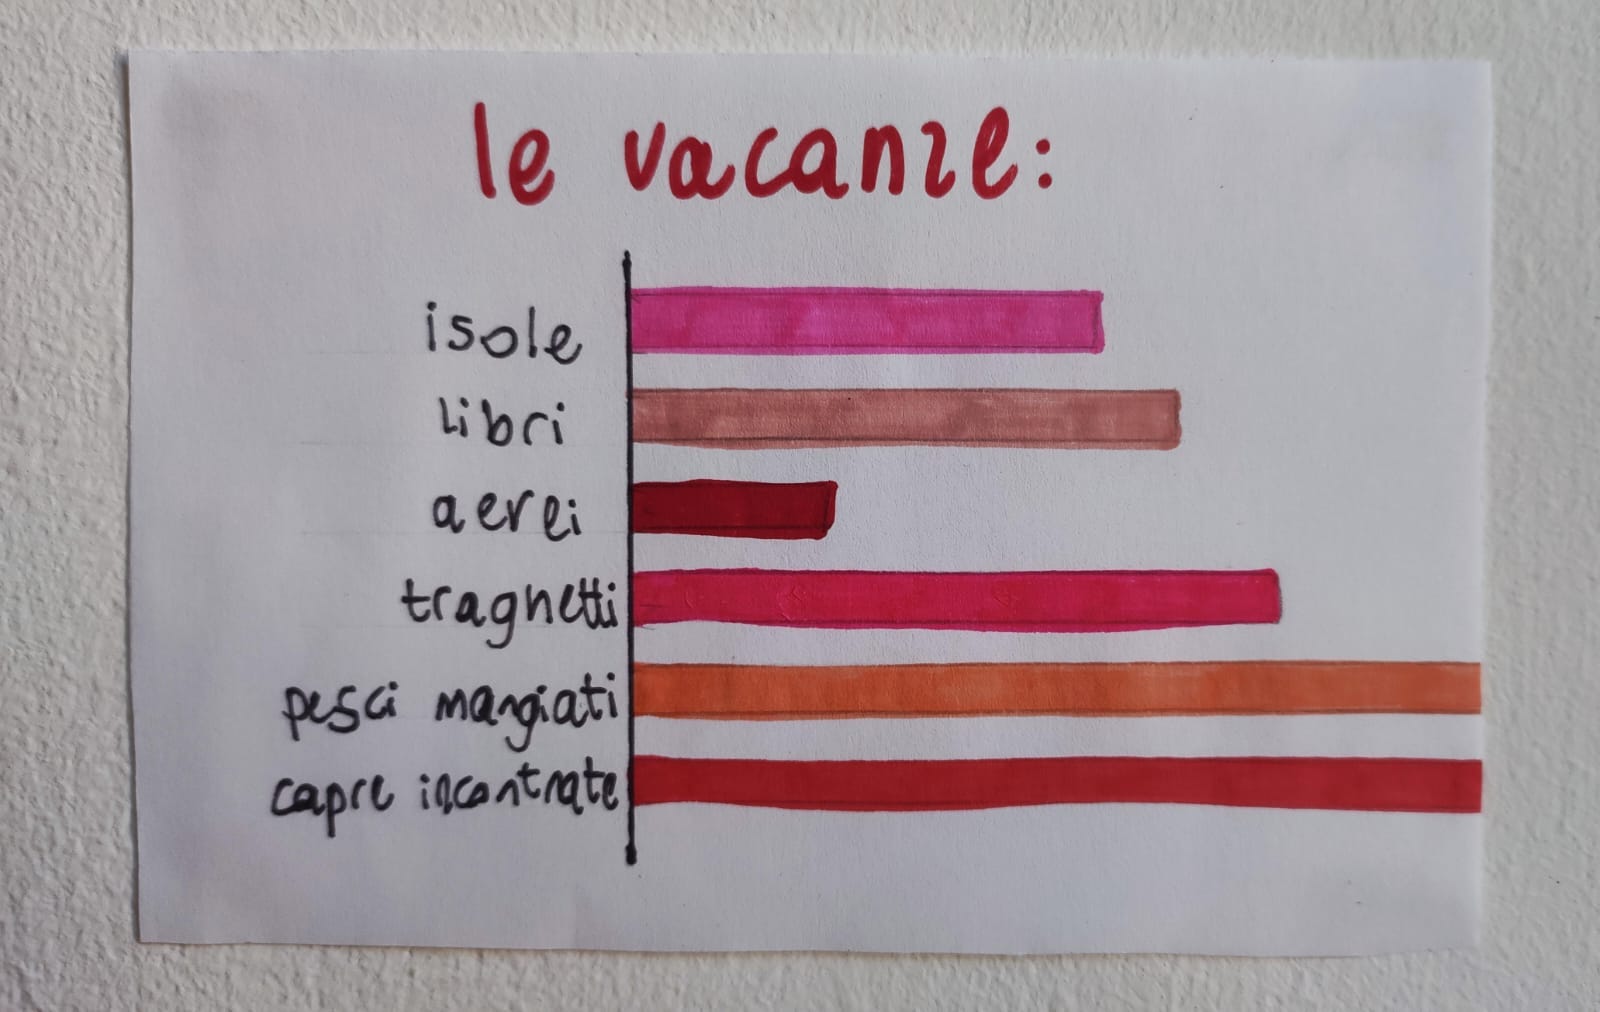 le vacanze:
isole
libri
aerei
traghetti
pesci mangiati
capre incontrate